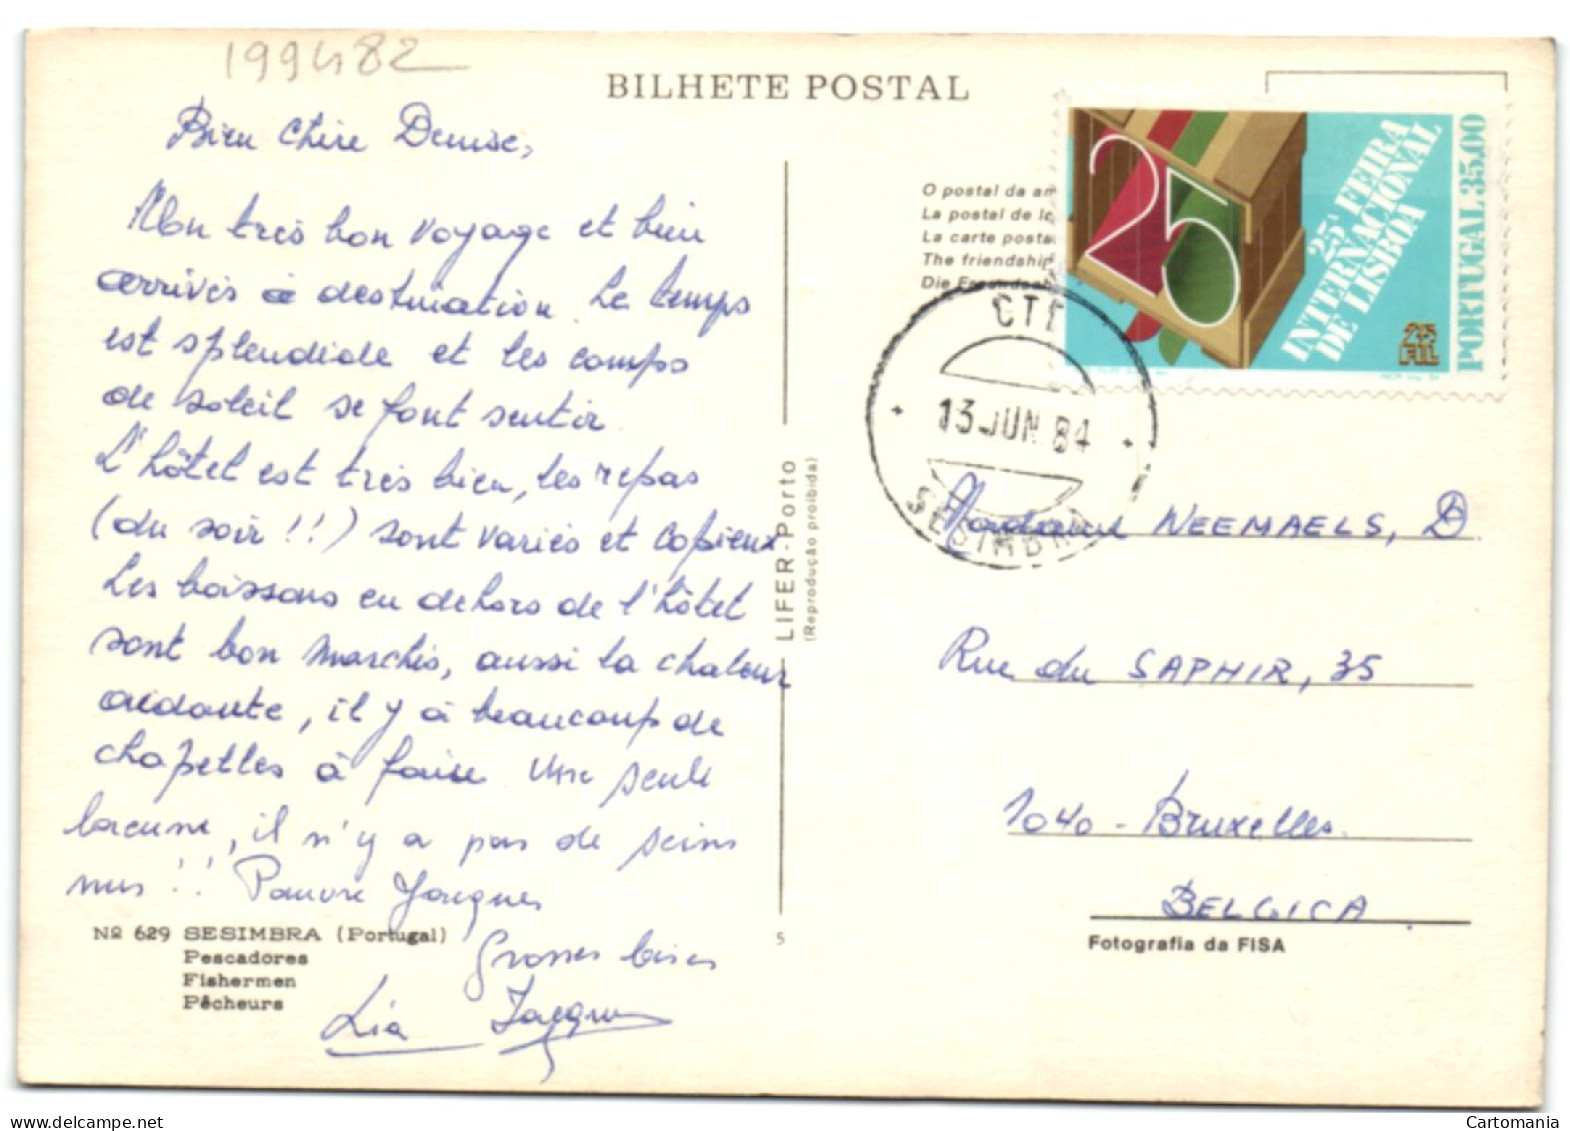 199482
BILHETE POSTAL
Bien chère Denise,
Mon très bon voyage et bien
arrivés à destination. Le temps
est splendide et les comps
de soleil se font sentir.
L'hôtel est très bien, les repas
(du soir !!) sont variés et copieux
Les boissons en dehors de l'hôtel
sont bon marchés, aussi la chaleur
aidante, il y a beaucoup de
chapelles à faire Une seule
lacune, il n'y a pas de seins
nus !! Pauvre Jacques
Grosses bises
Lia Jacques
Nº 629 SESIMBRA (Portugal)
Pescadores
Fishermen
Pêcheurs
LIFER-Porto
(Reprodução proibida)
5
O postal da am
La postal de la
La carte posta
The friendship
Die Freundsch
25
25ª FEIRA
INTERNACIONAL
DE LISBOA
PORTUGAL 35.00
25
FIL
CTT
13 JUN. 84
SESIMBRA
Madame NEEMAELS, D.
Rue du SAPHIR, 35
1040 - Bruxelles.
BELGICA
Fotografia da FISA
Cartomania